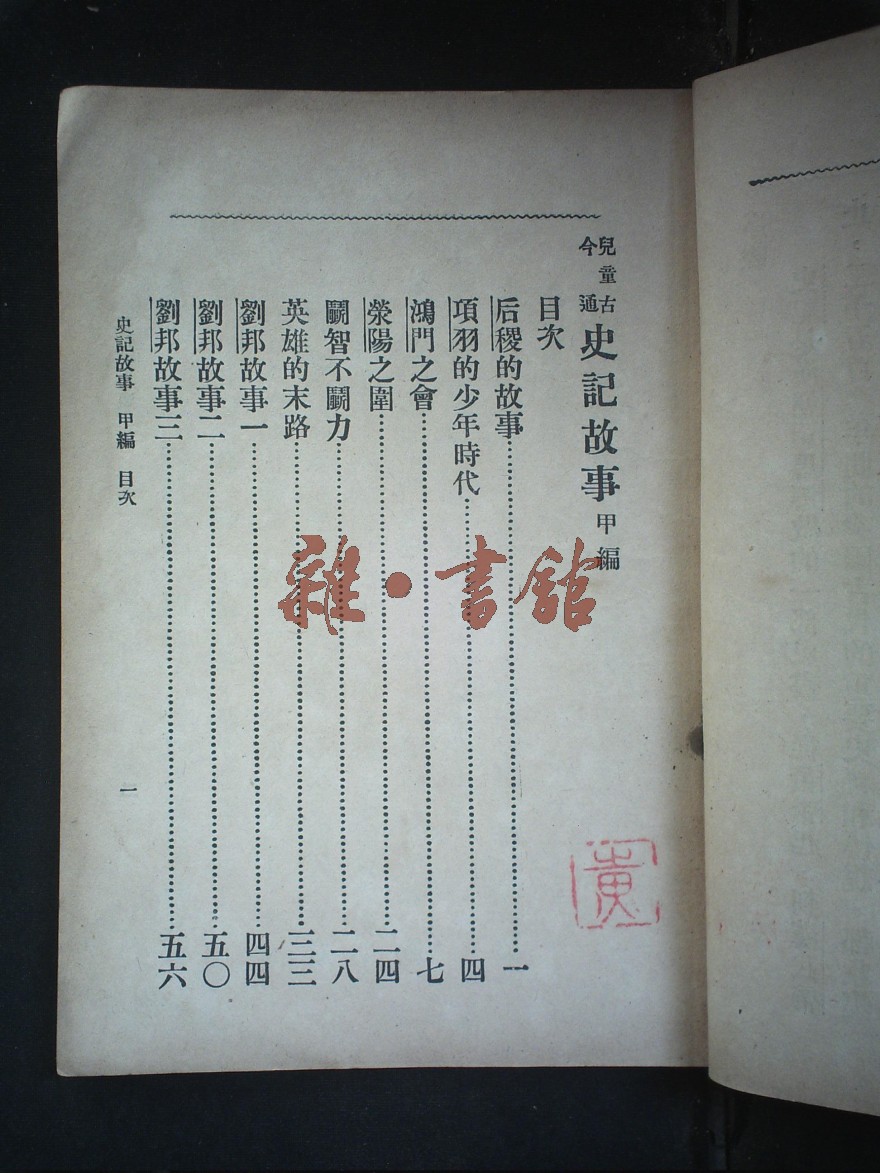 兒童古今通 史記故事 甲編
目次
后稷的故事⋯⋯一
項羽的少年時代⋯⋯四
鴻門之會⋯⋯七
滎陽之圍⋯⋯二四
鬭智不鬭力⋯⋯二八
英雄的末路⋯⋯三三
劉邦故事一⋯⋯四四
劉邦故事二⋯⋯五〇
劉邦故事三⋯⋯五六
史記故事 甲編 目次 一
雜·書館
黄